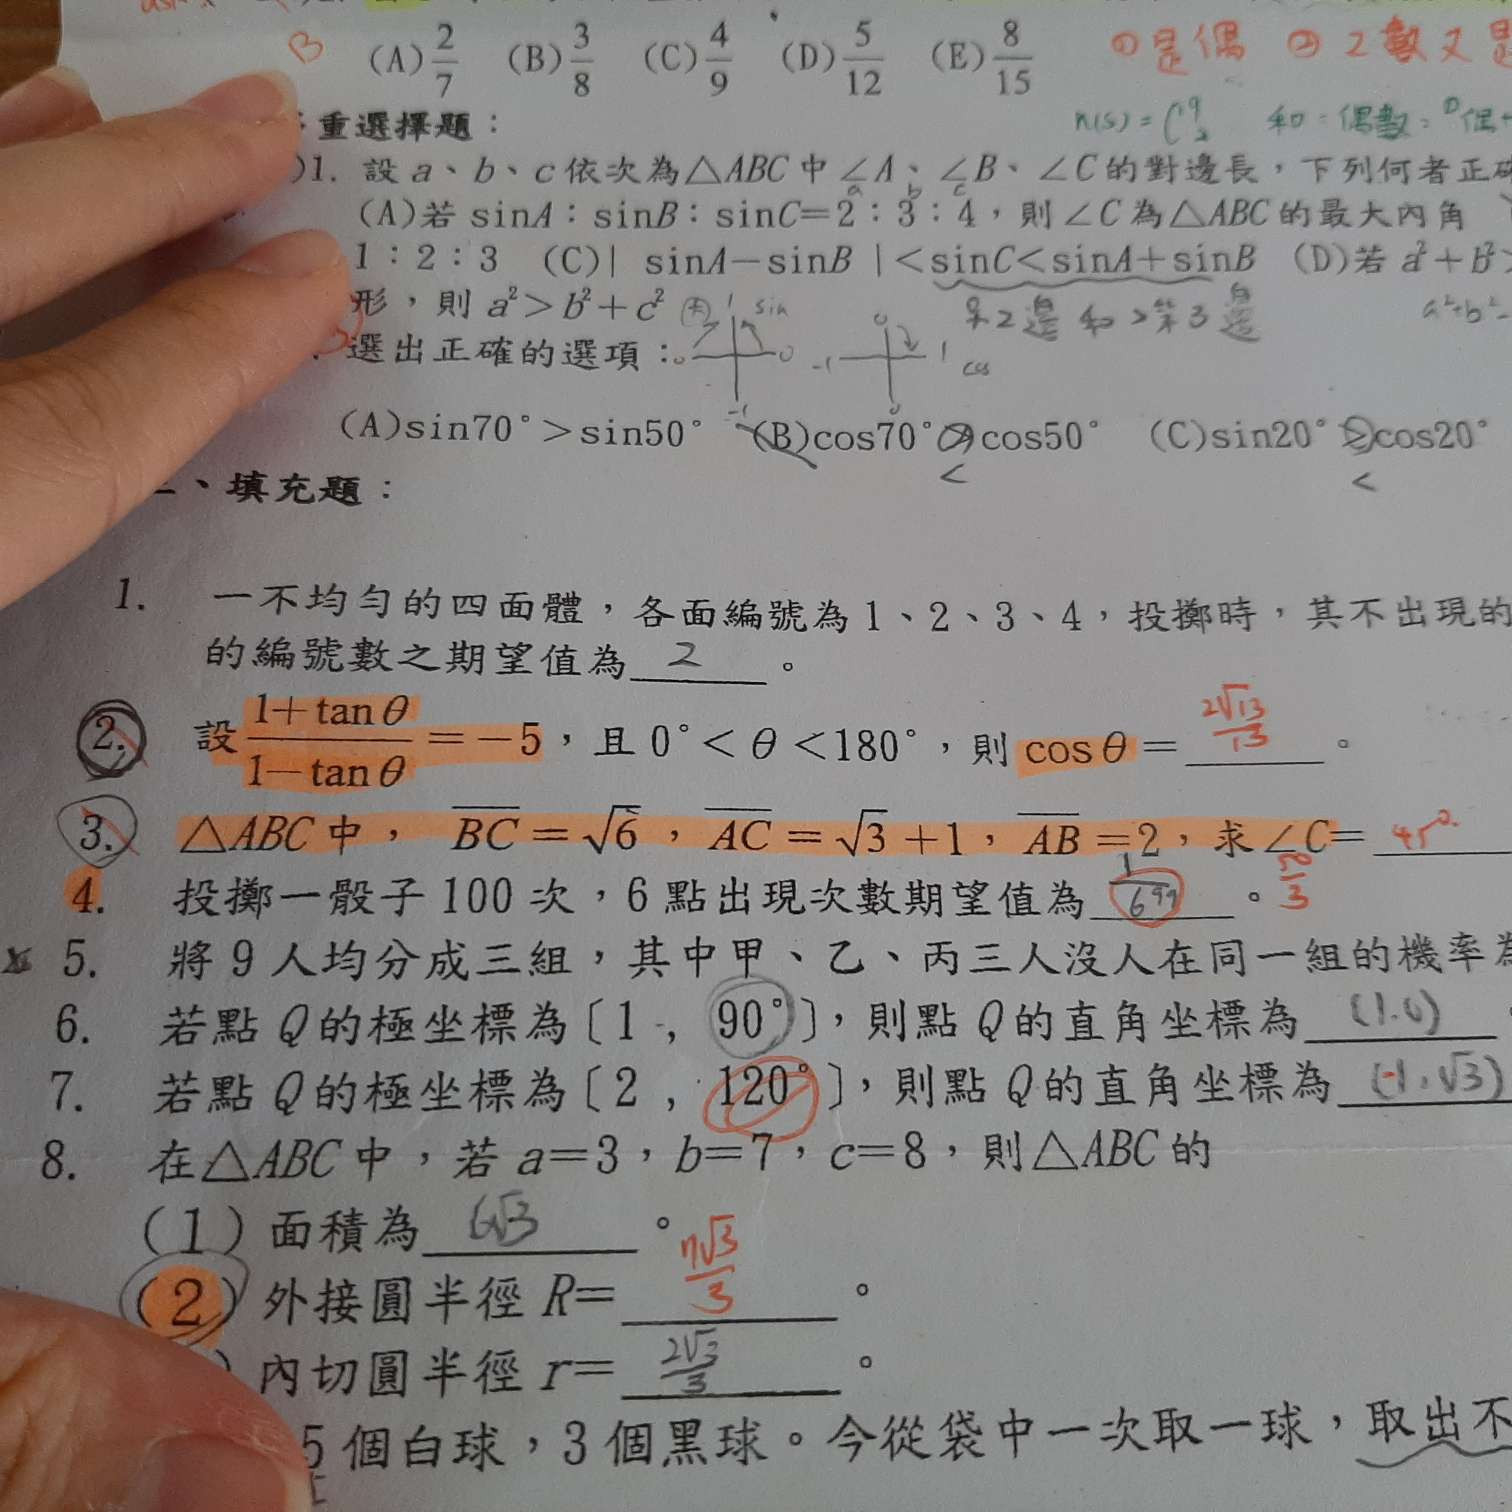 B (A)2/7 (B)3/8 (C)4/9 (D)5/12 (E)8/15 ①是偶 ②2數又是
重選擇題： n(s)=C⁹₂ 和=偶數：
)1. 設 a、b、c 依次為△ABC 中 ∠A、∠B、∠C 的對邊長，下列何者正確
a b c
(A)若 sinA：sinB：sinC=2：3：4，則 ∠C 為△ABC 的最大內角
1：2：3 (C)| sinA−sinB |<sinC<sinA+sinB (D)若 a²+b²>
形，則 a²>b²+c² sin 2邊和>第3邊
選出正確的選項： 0 1 0 -1 -1 0 1 0 cos
(A)sin70°>sin50° (B)cos70°>cos50° (C)sin20°>cos20°
< <
二、填充題：
1. 一不均勻的四面體，各面編號為 1、2、3、4，投擲時，其不出現的
的編號數之期望值為 2 。
2. 設 (1+tanθ)/(1−tanθ) =−5，且 0°<θ<180°，則 cosθ= 2√13/13 。
3. △ABC 中， BC=√6，AC=√3+1，AB=2，求∠C= 45°
4. 投擲一骰子 100 次，6 點出現次數期望值為 。 50/3
5. 將 9 人均分成三組，其中甲、乙、丙三人沒人在同一組的機率為
6. 若點 Q 的極坐標為〔1，90°〕，則點 Q 的直角坐標為
7. 若點 Q 的極坐標為〔2，120°〕，則點 Q 的直角坐標為 (-1,√3)
8. 在△ABC 中，若 a=3，b=7，c=8，則△ABC 的
(1) 面積為 6√3 。
(2) 外接圓半徑 R= 7√3/3 。
) 內切圓半徑 r= 2√3/3 。
5 個白球，3 個黑球。今從袋中一次取一球，取出不